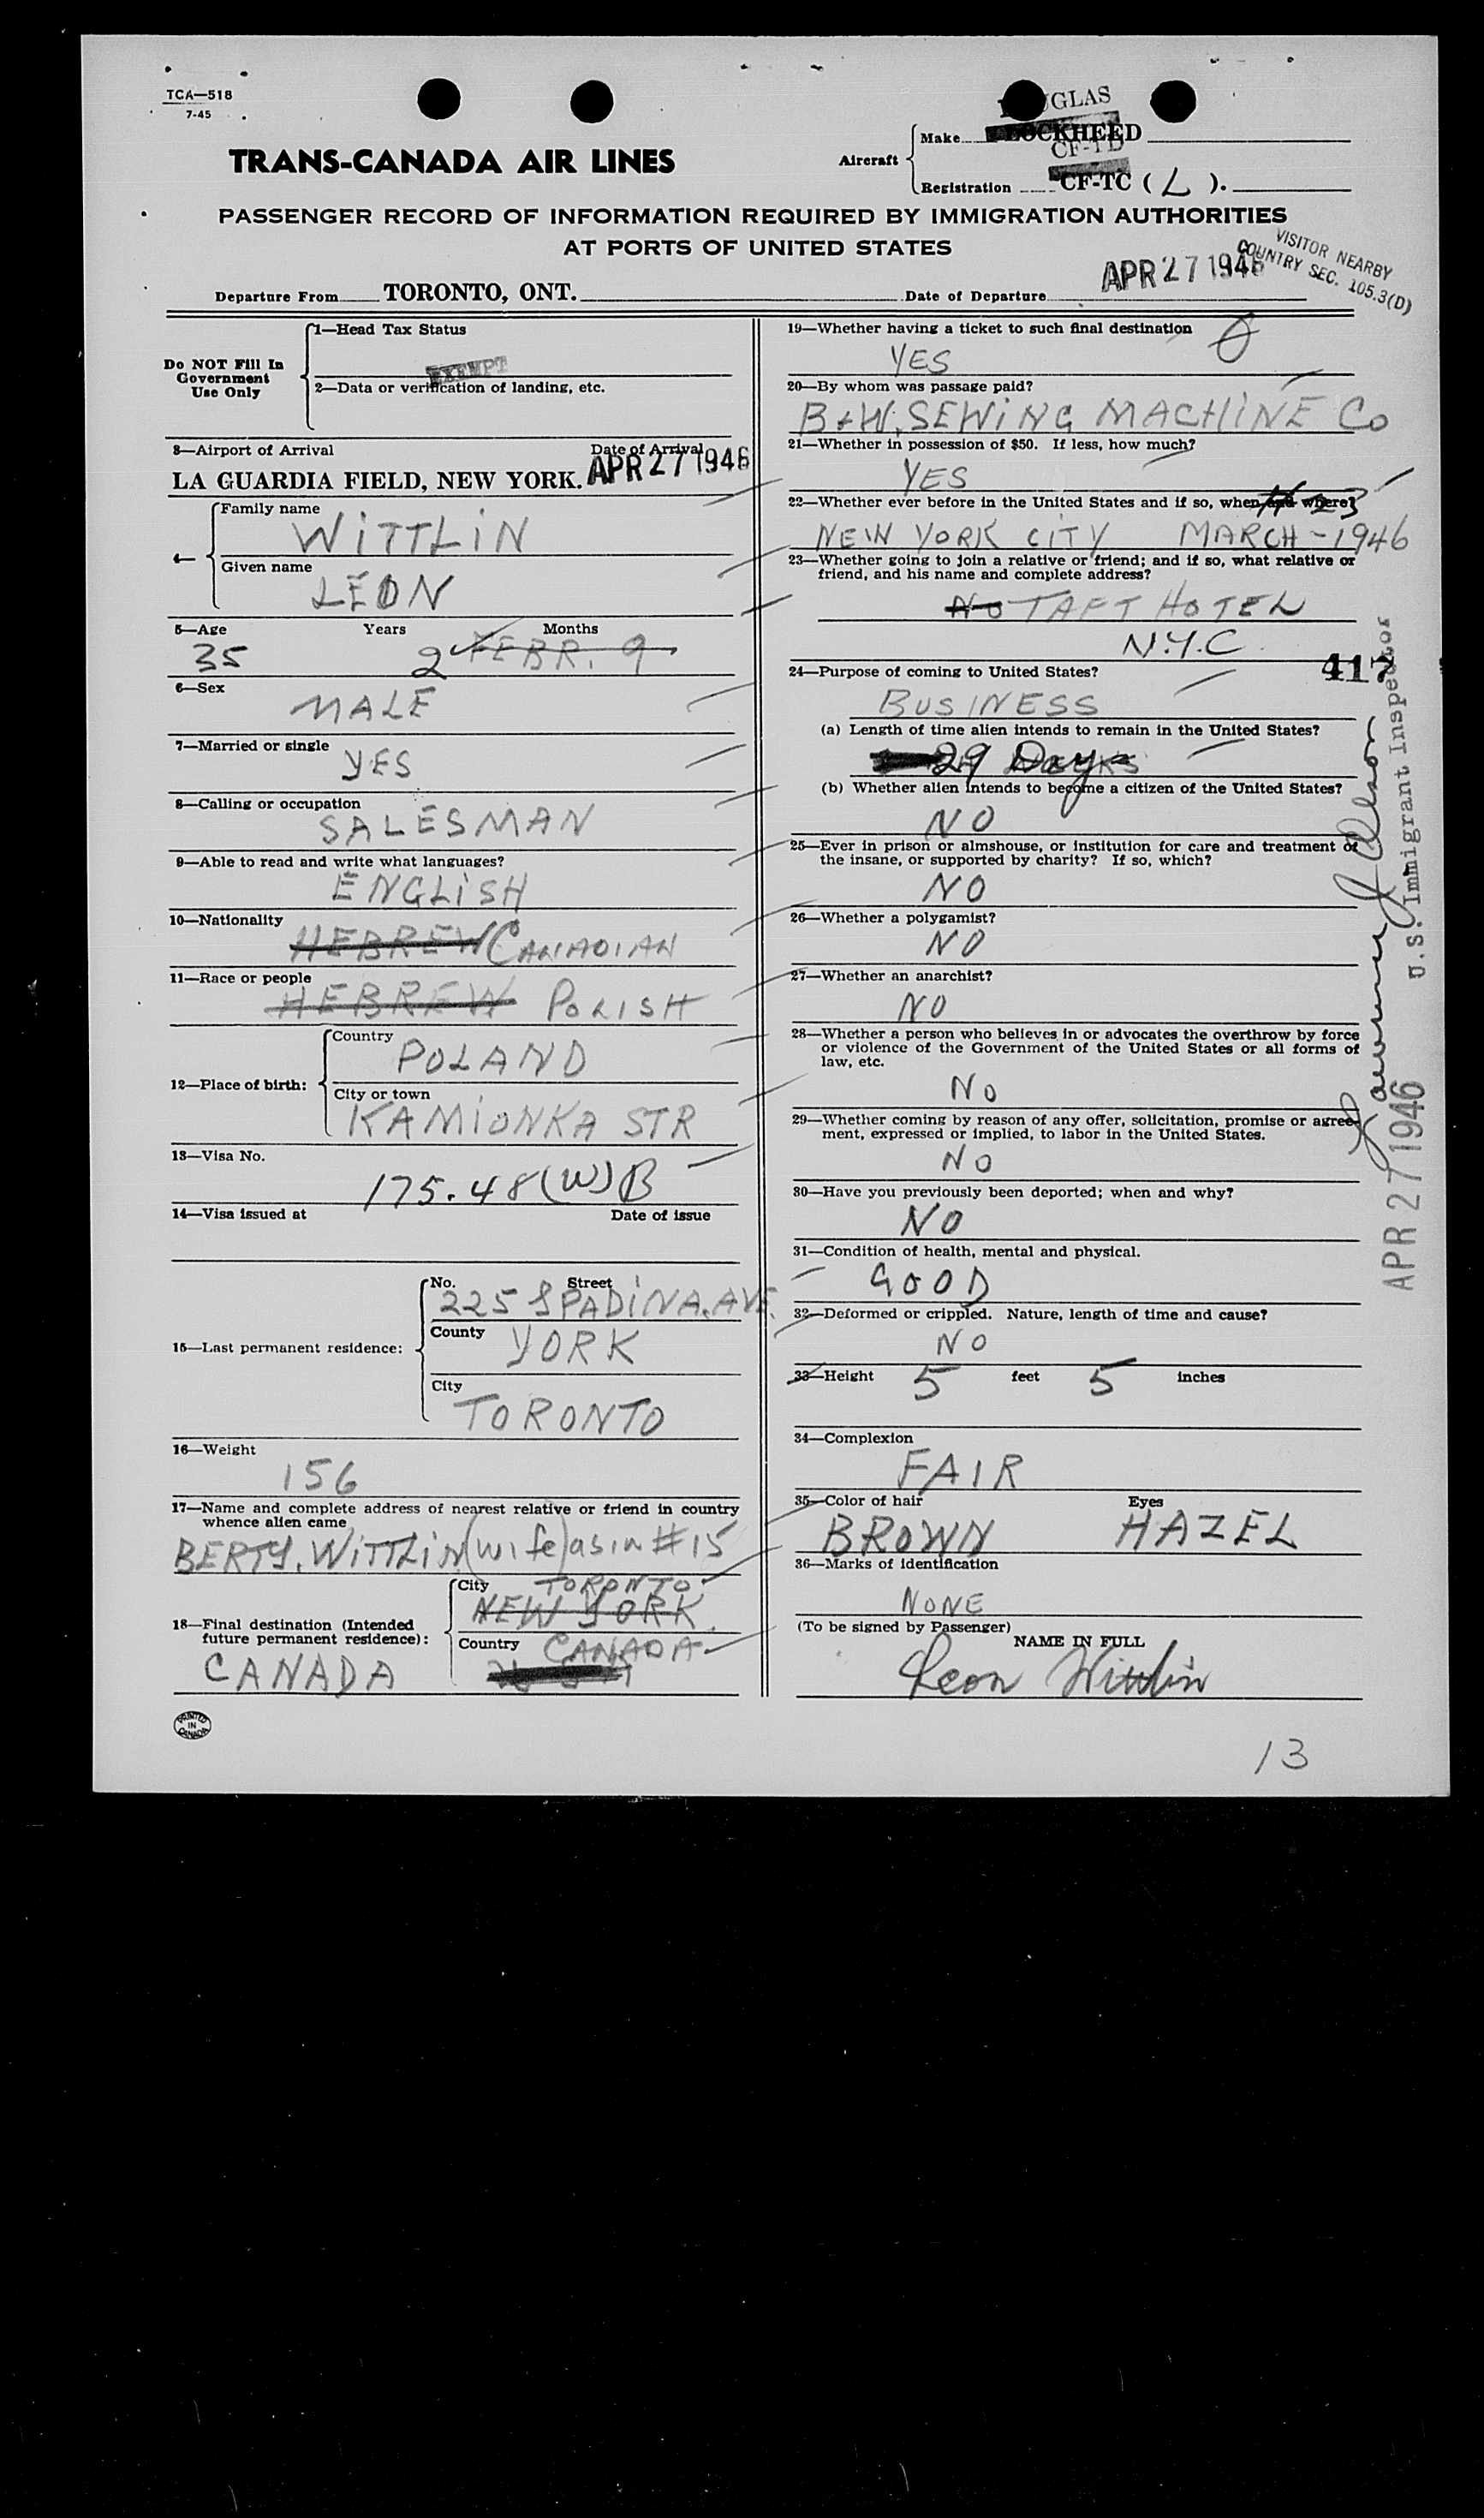 TCA—518
7-45
TRANS-CANADA AIR LINES
Aircraft
Make LOCKHEED
CF-TD
Registration CF-TC ( L ).
PASSENGER RECORD OF INFORMATION REQUIRED BY IMMIGRATION AUTHORITIES
AT PORTS OF UNITED STATES
VISITOR NEARBY
COUNTRY SEC. 105.3(D)
Departure From TORONTO, ONT. Date of Departure APR 27 1946
Do NOT Fill In
Government
Use Only
1—Head Tax Status
EXEMPT
2—Data or verification of landing, etc.
3—Airport of Arrival Date of Arrival
LA GUARDIA FIELD, NEW YORK. APR 27 1946
Family name
WITTLIN
Given name
LEON
5—Age Years Months
35 2 FEBR. 9
6—Sex
MALE
7—Married or single
YES
8—Calling or occupation
SALESMAN
9—Able to read and write what languages?
ENGLISH
10—Nationality
HEBREW CANADIAN
11—Race or people
HEBREW POLISH
12—Place of birth:
Country
POLAND
City or town
KAMIONKA STR
13—Visa No.
175.48(W)B
14—Visa issued at Date of issue
15—Last permanent residence:
No. Street
225 SPADINA. AVE.
County
YORK
City
TORONTO
16—Weight
156
17—Name and complete address of nearest relative or friend in country
whence alien came
BERTY. WITTLIN (wife) as in #15
18—Final destination (Intended
future permanent residence):
CANADA
City TORONTO
NEW YORK
Country CANADA
PRINTED
IN
CANADA
19—Whether having a ticket to such final destination
YES
20—By whom was passage paid?
B+W. SEWING MACHINE Co
21—Whether in possession of $50. If less, how much?
YES
22—Whether ever before in the United States and if so, when and where?
NEW YORK CITY MARCH-1946
23—Whether going to join a relative or friend; and if so, what relative or
friend, and his name and complete address?
No TAFT HOTEL
N.Y.C.
417
24—Purpose of coming to United States?
BUSINESS
(a) Length of time alien intends to remain in the United States?
29 Days
(b) Whether alien intends to become a citizen of the United States?
NO
25—Ever in prison or almshouse, or institution for care and treatment of
the insane, or supported by charity? If so, which?
NO
26—Whether a polygamist?
NO
27—Whether an anarchist?
NO
28—Whether a person who believes in or advocates the overthrow by force
or violence of the Government of the United States or all forms of
law, etc.
No
29—Whether coming by reason of any offer, solicitation, promise or agree-
ment, expressed or implied, to labor in the United States.
NO
30—Have you previously been deported; when and why?
NO
31—Condition of health, mental and physical.
GOOD
32—Deformed or crippled. Nature, length of time and cause?
NO
33—Height 5 feet 5 inches
34—Complexion
FAIR
35—Color of hair Eyes
BROWN HAZEL
36—Marks of identification
NONE
(To be signed by Passenger)
NAME IN FULL
Leon Wittlin
13
U.S. Immigrant Inspector
APR 27 1946